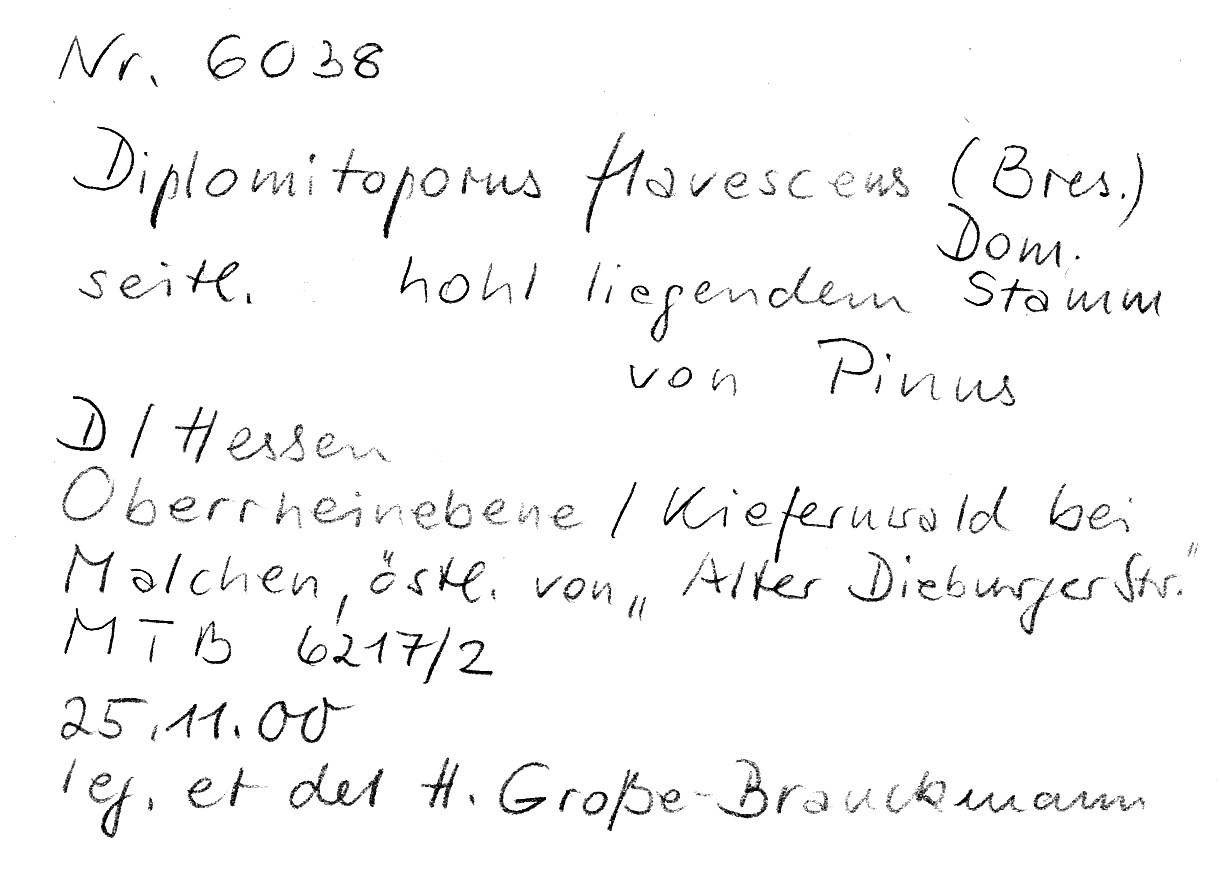 Nr. 6038
Diplomitoporus flavescens (Bres.)
Dom.
seitl. hohl liegendem Stamm
von Pinus
D/Hessen
Oberrheinebene / Kiefernwald bei
Malchen, östl. von „Alter Dieburger Str."
MTB 6217/2
25.11.00
leg. et det H. Große-Brauckmann